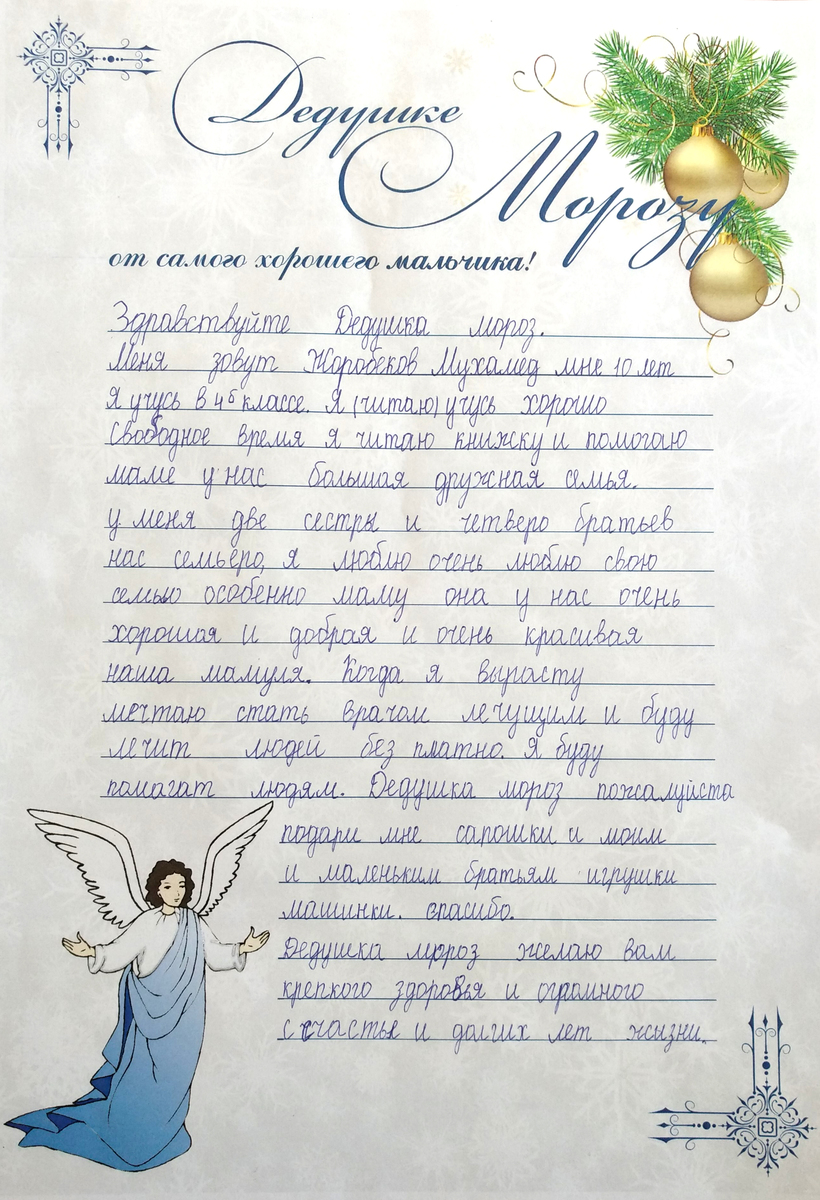 Дедушке
Морозу
от самого хорошего мальчика!
Здравствуйте Дедушка мороз.
Меня зовут Жоробеков Мухамед мне 10 лет
Я учусь в 4б классе. Я (читаю) учусь хорошо
свободное время я читаю книжку и помогаю
маме у нас большая дружная семья.
у меня две сестры и четверо братьев
нас семьеро, я люблю очень люблю свою
семью особенно маму она у нас очень
хорошая и добрая и очень красивая
наша мамуля. Когда я вырасту
мечтаю стать врачом лечущим и буду
лечит людей без платно. Я буду
помагат людям. Дедушка мороз пожалуйста
подари мне сапошки и моим
и маленьким братьям игрушки
машинки. спасибо.
Дедушка мороз желаю вам
крепкого здоровья и огромного
счастье и долгих лет жызни.